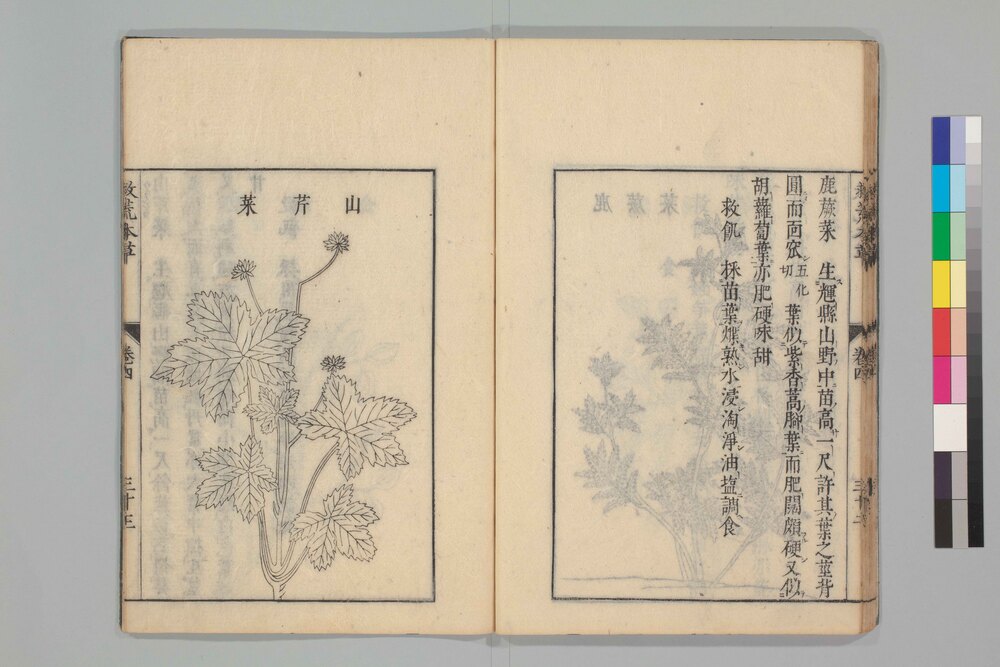 鹿蕨菜　生輝縣山野中苗高一尺許其葉之莖背
圓而面窊五化切葉似紫香蒿脚葉而肥闊頗硬又似
胡蘿蔔葉亦肥硬味甜
救飢　採苗葉煠熟水浸淘淨油塩調食
卷四
山芹菜
救荒本草
卷四
三十三